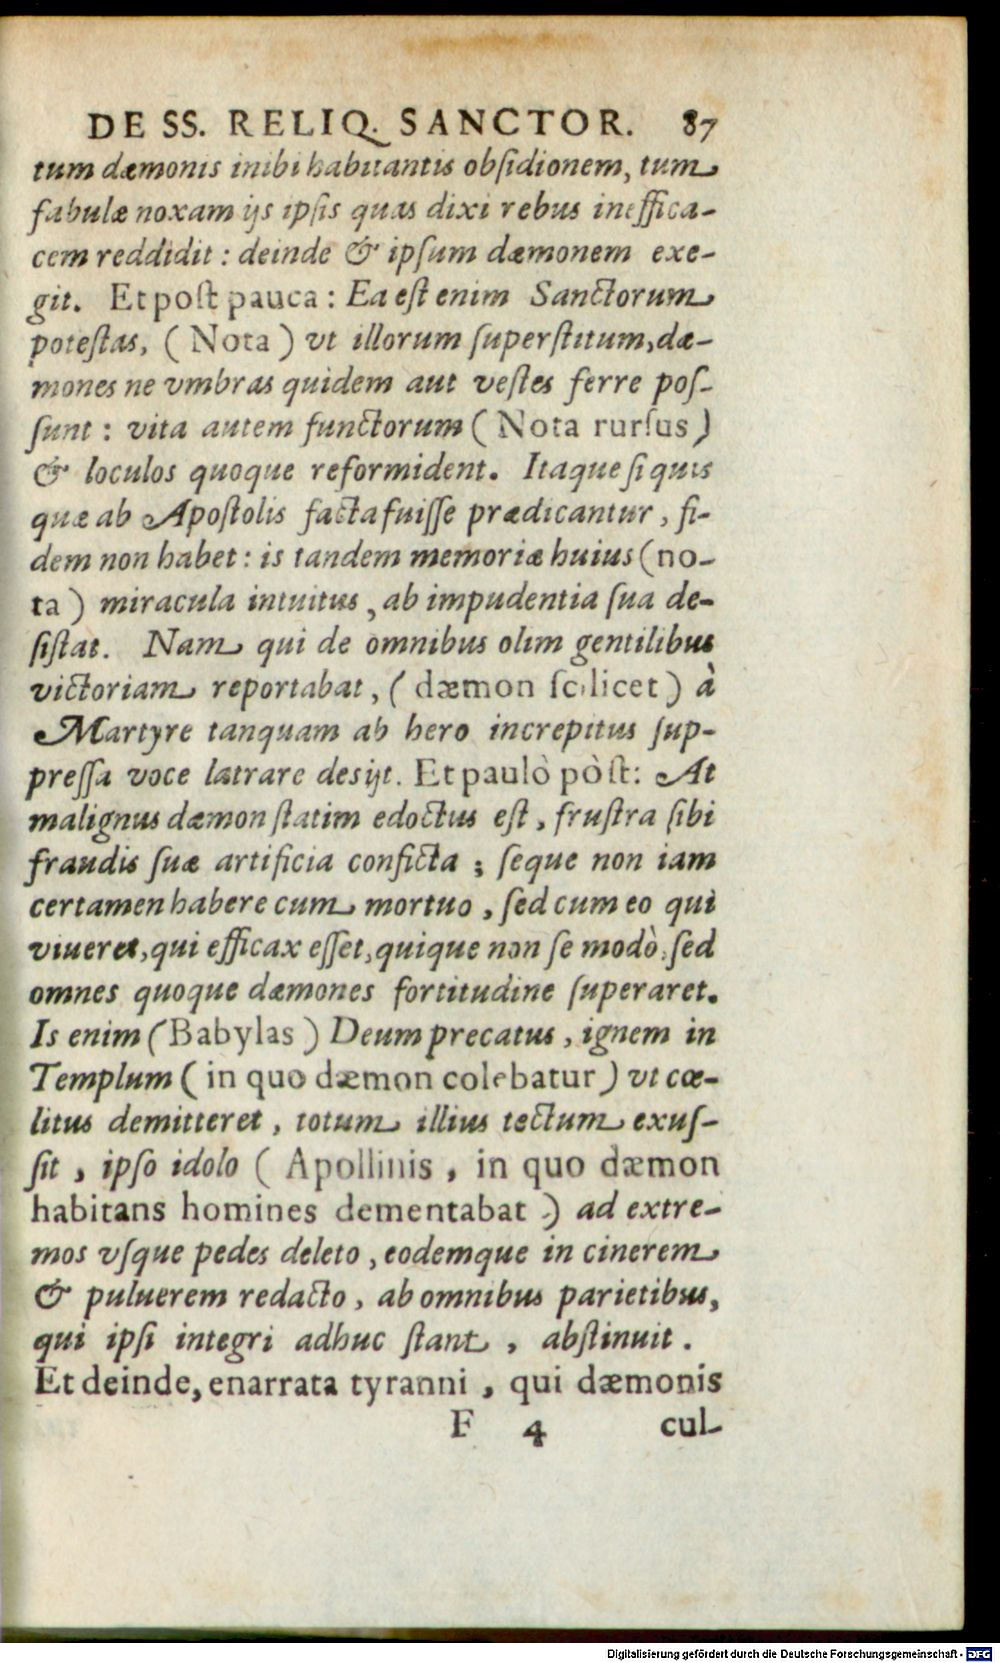 DE SS. RELIQ. SANCTOR. 87
tum dæmonis inibi habitantis obſidionem, tum
fabulæ noxam ijs ipſis quas dixi rebus ineffica-
cem reddidit : deinde & ipſum dæmonem exe-
git. Et poſt pauca : Ea eſt enim Sanctorum
poteſtas, ( Nota ) vt illorum ſuperſtitum, dæ-
mones ne vmbras quidem aut veſtes ferre poſ-
ſunt : vita autem functorum ( Nota rurſus )
& loculos quoque reformident. Itaque ſi quis
quæ ab Apoſtolis facta fuiſſe prædicantur, fi-
dem non habet : is tandem memoriæ huius ( no-
ta ) miracula intuitus, ab impudentia ſua de-
ſiſtat. Nam qui de omnibus olim gentilibus
victoriam reportabat, ( dæmon ſcilicet ) à
Martyre tanquam ab hero increpitus ſup-
preſſa voce latrare desijt. Et paulò pòſt: At
malignus dæmon ſtatim edoctus eſt, fruſtra ſibi
fraudis ſuæ artificia conficta ; ſeque non iam
certamen habere cum mortuo, ſed cum eo qui
viueret, qui efficax eſſet, quique non ſe modò, ſed
omnes quoque dæmones fortitudine ſuperaret.
Is enim ( Babylas ) Deum precatus, ignem in
Templum ( in quo dæmon colebatur ) vt cœ-
litus demitteret, totum illius tectum exuſ-
ſit, ipſo idolo ( Apollinis, in quo dæmon
habitans homines dementabat ) ad extre-
mos vſque pedes deleto, eodemque in cinerem
& puluerem redacto, ab omnibus parietibus,
qui ipſi integri adhuc ſtant, abſtinuit.
Et deinde, enarrata tyranni, qui dæmonis
F 4 cul-
Digitalisierung gefördert durch die Deutsche Forschungsgemeinschaft - DFG